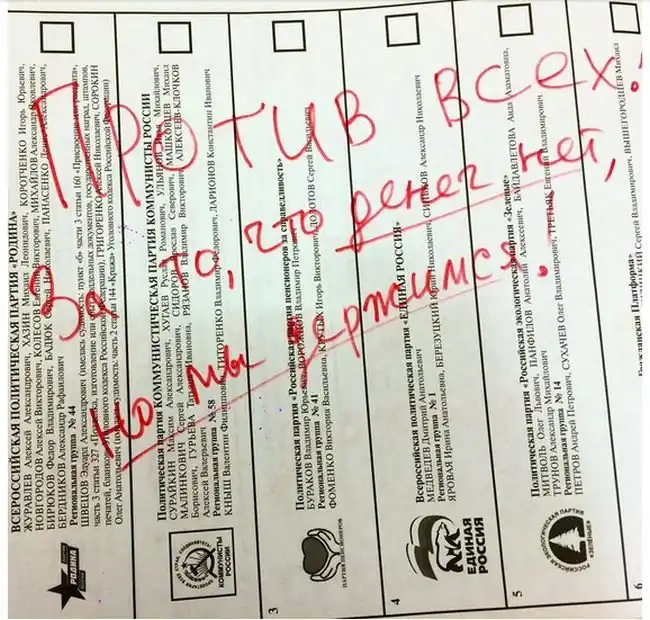 Против всех!
За то, что денег нет,
но мы держимся.
ВСЕРОССИЙСКАЯ ПОЛИТИЧЕСКАЯ ПАРТИЯ «РОДИНА»
ЖУРАВЛЕВ Алексей Александрович, ХАЗИН Михаил Леонидович, КОРОТЧЕНКО Игорь Юрьевич,
НОВГОРОДОВ Алексей Викторович, КОЛЕСОВ Евгений Викторович, МИХАЙЛОВ Александр Яковлевич,
БИРЮКОВ Федор Владимирович, БАДЮК Сергей Николаевич, ПАНАСЕНКО Денис Александрович,
БЕРДНИКОВ Александр Рафаилович
Региональная группа № 44
ШВЕЦОВ Эдуард Александрович (имелась судимость: пункт «б» части 3 статьи 160 «Присвоение или растрата»,
часть 3 статьи 327 изготовление или документов, государственных наград, штампов,
печатей, бланков» Уголовного кодекса Российской Федерации), ГРИГОРЕНКО Алексей Николаевич, СОРОКИН
Олег Анатольевич судимость: часть 2 статьи 144 «Кража» Уголовного кодекса Российской Федерации)
РОДИНА
Политическая партия КОММУНИСТИЧЕСКАЯ ПАРТИЯ КОММУНИСТЫ РОССИИ
СУРАЙКИН Максим Александрович, ХУГАЕВ Руслан Романович, УЛЬЯНОВ Михайлович,
МАЛИНКОВИЧ Сергей Александрович, СИДОРОВ Ярослав Северович, МАШКОВЦЕВ Михаил
Борисович, ГУРЬЕВА Ивановна, РЯЗАНОВ Владимир Викторович, АЛЕКСЕЕВ-КЛОЧКОВ
Алексей Валерьевич
Региональная группа № 58
КНЫШ Валентин Филиппович, ТИТОРЕНКО Владимир ЛАРИОНОВ Константин Иванович
КОММУНИСТЫ
РОССИИ
3
Политическая партия «Российская партия пенсионеров за справедливость»
БУРАКОВ Владимир Юрьевич, ВОРОЖЦОВ Владимир Петрович, ДОЛОТОВ Сергей Васильевич
Региональная группа № 41
ФОМЕНКО Виктория Васильевна, КРУТЫХ Игорь Викторович
ПАРТИЯ ПЕНСИОНЕРОВ
4
Всероссийская политическая партия «ЕДИНАЯ РОССИЯ»
МЕДВЕДЕВ Дмитрий Анатольевич
Региональная группа № 1
ЯРОВАЯ Ирина Анатольевна, БЕРЕЗУЦКИЙ Юрий Николаевич, Александр Николаевич
ЕДИНАЯ
РОССИЯ
5
Политическая партия «Российская экологическая партия «Зеленые»
МИТВОЛЬ Олег Львович, ПАНФИЛОВ Анатолий Алексеевич, БАЙДАВЛЕТОВА Аида Ахматовна,
ТРУНОВ Александр Михайлович
Региональная группа № 14
ПЕТРОВ Андрей Петрович, СУХАЧЕВ Олег Владимирович, ТРЕТЬЯК Евгений Владимирович
РОССИЙСКАЯ ЭКОЛОГИЧЕСКАЯ ПАРТИЯ
«ЗЕЛЁНЫЕ»
6
Гражданская Платформа»
Сергей Владимирович, ВЫШЕГОРОДЦЕВ Михаил